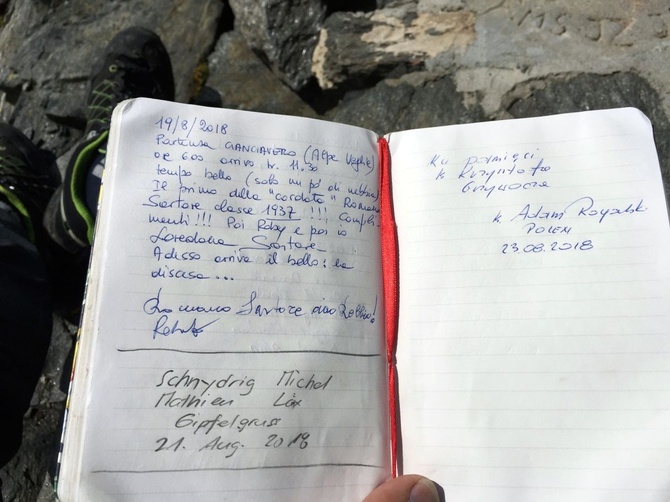 19/8/2018
Partenza CIANCIAVERO (Alpe Veglia)
ore 6.00 arrivo h. 11.30
tempo bello (solo un po' di nebbia)
Il primo della "cordata" Romano
Sartore classe 1937 !!! Compli-
menti!!! Poi Roby e poi io
Loredana Sartore
Adesso arriva il bello: la
discesa ...
Romano Sartore
Schnydrig Michel
Mathieu Löx
Gipfelgruss
21. Aug. 2018
Ku pamięci
k. Krzysztofa
Grzywocza
k. Adam
23.08.2018
MS